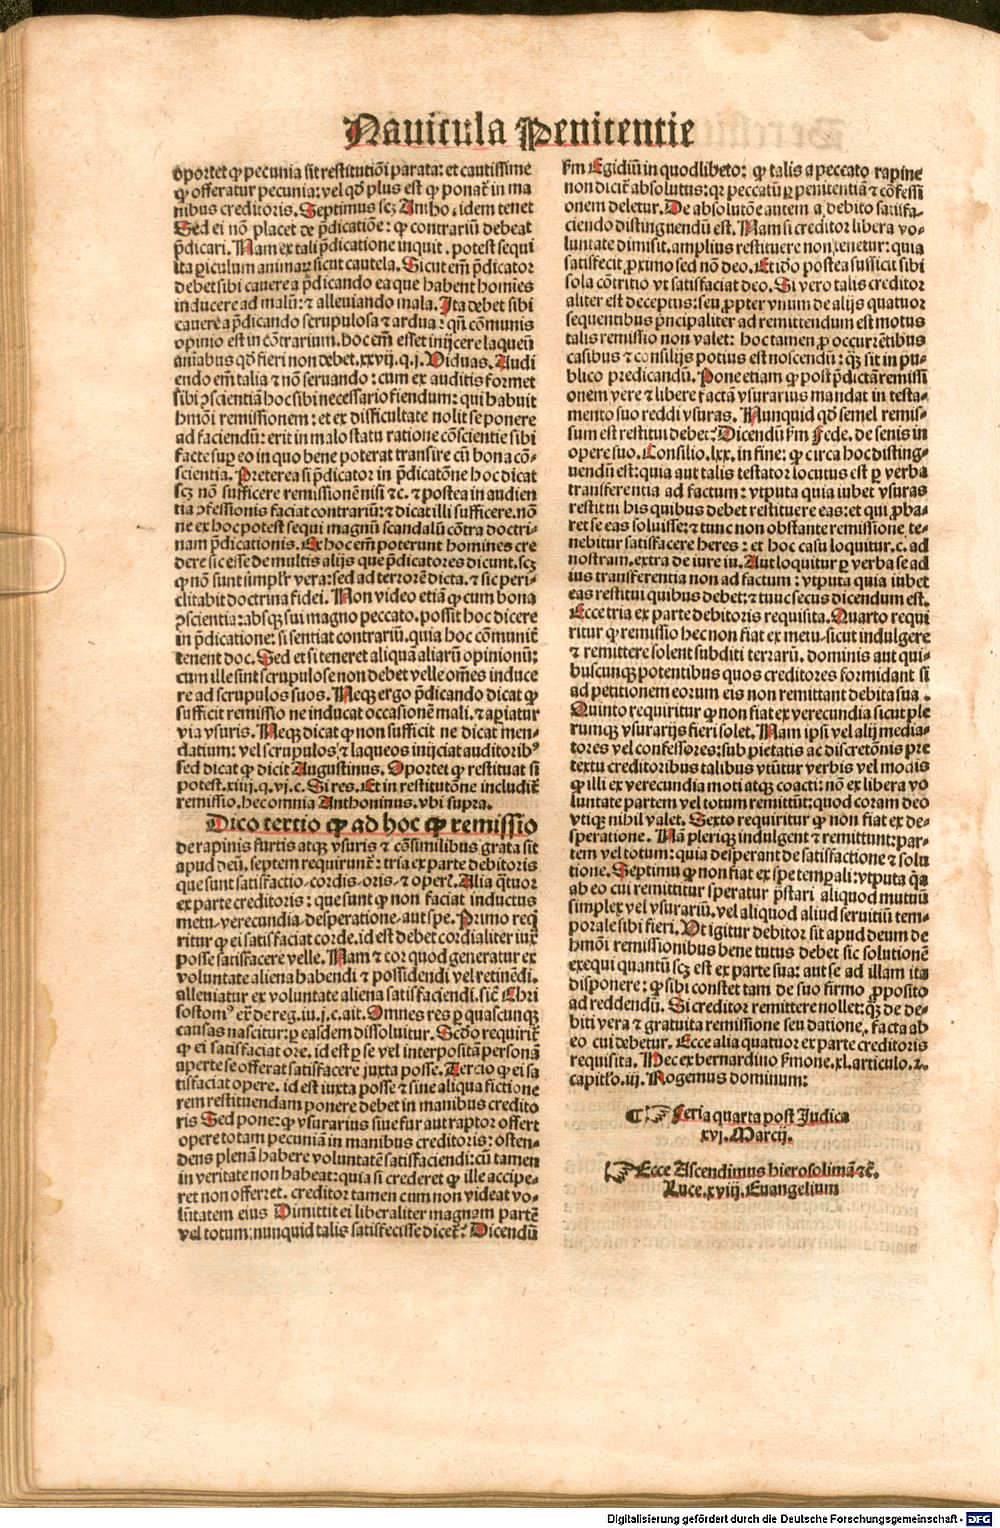 Nauicula Penitentie
oportet ꝙ pecunia sit restitutiōi parata: et cautissime
ꝙ offeratur pecunia: vel qđ plus est ꝙ ponat̄ in ma
nibus creditoris. Septimus scꝫ Antho. idem tenet
Sed ei nō placet de p̄dicatiōe: ꝙ contrariū debeat
p̄dicari. Nam ex tali p̄dicatione inquit. potest sequi
ita ꝑiculum animaꝝ sicut cautela. Sicut em̄ p̄dicator
debet sibi cauere a p̄dicando ea que habent homīes
inducere ad malū: ⁊ alleuiando mala. Ita debet sibi
cauere a p̄dicando scrupulosa ⁊ ardua: qn̄ cōmunis
opinio est in cōtrarium. hoc em̄ esset inijcere laqueū
aniabus qđ fieri non debet. xxvij. q. j. Viduas. Audi
endo em̄ talia ⁊ nō seruando: cum ex auditis formet
sibi ꝯscientiā hoc sibi necessario fiendum: qui habuit
hmōi remissionem: et ex difficultate nolit se ponere
ad faciendū: erit in malo statu ratione cōscientie sibi
facte suꝑ eo in quo bene poterat transire cū bona cō-
scientia. Preterea si p̄dicator in p̄dicatōne hoc dicat
scꝫ nō sufficere remissionē nisi ⁊c. ⁊ postea in audien
tia ꝯfessionis faciat contrariū: ⁊ dicat illi sufficere. nō
ne ex hoc potest sequi magnū scandalū cōtra doctri-
nam p̄dicationis. Ex hoc em̄ poterunt homines cre
dere sic esse de multis alijs que p̄dicatores dicunt. scꝫ
ꝙ nō sunt simplr̄ vera: sed ad terrorē dicta. ⁊ sic peri-
clitabit doctrina fidei. Non video etiā ꝙ cum bona
ꝯscientia: absqꝫ sui magno peccato. possit hoc dicere
in p̄dicatione: si sentiat contrariū. quia hoc cōmunit̄
tenent doc. Sed et si teneret aliquā aliarū opinionū:
cum ille sint scrupulose non debet velle oēs induce
re ad scrupulos suos. Neqꝫ ergo p̄dicando dicat ꝙ
sufficit remissio ne inducat occasionē mali. ⁊ aꝑiatur
via vsuris. Neqꝫ dicat ꝙ non sufficit ne dicat men-
datium: vel scrupulos ⁊ laqueos inijciat auditoribꝰ
sed dicat ꝙ dicit Augustinus. Oportet ꝙ restituat si
potest. xiiij. q. vj. c. Si res. Et in restitutōne includit̄
remissio. hec omnia Anthoninus. vbi supra.
Dico tertio ꝙ ad hoc ꝙ remissio
de rapinis furtis atqꝫ vsuris ⁊ cōsimilibus grata sit
apud deū. septem requirunt̄: tria ex parte debitoris
que sunt satisfactio-cordis-oris-⁊ oper̄. Alia q̄tuor
ex parte creditoris: que sunt ꝙ non faciat inductus
metu-verecundia-desperatione-aut spe. Primo req̄
ritur ꝙ ei satisfaciat corde. id est debet cordialiter iux̄
posse satisfacere velle. Nam ⁊ cor quod generatur ex
voluntate aliena habendi ⁊ possidendi vel retinēdi.
alleniatur ex voluntate aliena satisfaciendi. sic̄ Chri
sostomꝰ ex̄ de reg. iu. j. c. ait. Omnes res ꝑ quascunqꝫ
causas nascitur: ꝑ easdem dissoluitur. Scđo requirit̄
ꝙ ei satisfaciat ore. id est ꝑ se vel interpositā personā
aperte se offerat satisfacere juxta posse. Tercio ꝙ ei sa
tisfaciat opere. id est iuxta posse ⁊ sine aliqua fictione
rem restituendam ponere debet in manibus credito
ris Sed pone: ꝙ vsurarius siue fur aut raptor offert
opere totam pecuniā in manibus creditoris: osten-
dens plenā habere voluntatē satisfaciendi: cū tamen
in veritate non habeat: quia si crederet ꝙ ille accipe-
ret non offerret. creditor tamen cum non videat vo-
lūtatem eius Dimittit ei liberaliter magnam partē
vel totum: nunquid talis satisfecisse dicet̄? Dicendū
s̄m Egidiū in quodlibeto: ꝙ talis a peccato rapine
non dicit̄ absolutus: qꝛ peccatū ꝑ penitentiā ⁊ cōfessi
onem deletur. De absolutōe autem a debito satisfa-
ciendo distinguendū est. Nam si creditor libera vo-
luntate dimisit. amplius restituere non tenetur: quia
satisfecit ꝓximo sed nō deo. Et iđo postea sufficit sibi
sola cōtritio vt satisfaciat deo. Si vero talis creditor
aliter est deceptus: seu ꝓpter vnum de alijs quatuor
sequentibus p̄ncipaliter ad remittendum est motus
talis remissio non valet: hoc tamen ꝓ occurrētibus
casibus ⁊ consilijs potius est noscendū: qꝫ sit in pu-
blico predicandū. Pone etiam ꝙ post p̄dictā remissi
onem vere ⁊ libere factā vsurarius mandat in testa-
mento suo reddi vsuras. Nunquid qđ semel remis-
sum est restitui debet? Dicendū s̄m Fede. de senis in
opere suo. Consilio. lxx. in fine: ꝙ circa hoc disting-
uendū est: quia aut talis testator locutus est ꝑ verba
transferentia ad factum: vtputa quia iubet vsuras
restitui his quibus debet restituere eas: et qui ꝓba-
ret se eas soluisse: ⁊ tunc non obstante remissione te-
nebitur satisfacere heres: et hoc casu loquitur. c. ad
nostram. extra de iure iu. Aut loquitur ꝑ verba se ad
ius transferentia non ad factum: vtputa quia iubet
eas restitui quibus debet: ⁊ tunc secus dicendum est.
Ecce tria ex parte debitoris requisita. Quarto requi
ritur ꝙ remissio hec non fiat ex metu-sicut indulgere
⁊ remittere solent subditi terrarū. dominis aut qui-
buscunqꝫ potentibus quos creditores formidant si
ad petitionem eorum eis non remittant debita sua.
Quinto requiritur ꝙ non fiat ex verecundia sicut ple
rumqꝫ vsurarijs fieri solet. Nam ipsi vel alij media-
tores vel confessores: sub pietatis ac discretōnis pre
textu creditoribus talibus vtūtur verbis vel modis
ꝙ illi ex verecundia moti atqꝫ coacti: nō ex libera vo
luntate partem vel totum remittūt: quod coram deo
vtiqꝫ nihil valet. Sexto requiritur ꝙ non fiat ex de-
speratione. Nā pleriqꝫ indulgent ⁊ remittunt: par-
tem vel totum: quia desperant de satisfactione ⁊ solu
tione. Septimū ꝙ non fiat ex spe tempali: vtputa q̄a
ab eo cui remittitur speratur p̄stari aliquod mutuū
simplex vel vsurariū. vel aliquod aliud seruitiū tem-
porale sibi fieri. Vt igitur debitor sit apud deum de
hmōi remissionibus bene tutus debet sic solutionē
exequi quantū scꝫ est ex parte sua: aut se ad illam ita
disponere: ꝙ sibi constet tam de suo firmo ꝓposito
ad reddendū. Si creditor remittere nollet: qꝫ de de-
biti vera ⁊ gratuita remissione seu datione. facta ab
eo cui debetur. Ecce alia quatuor ex parte creditoris
requisita. Hec ex bernardino s̄mone. xl. articulo. 2.
capitl̄o. iij. Rogemus dominum:
¶ ☞ Feria quarta post Judica
xvj. Marcij.
☞ Ecce Ascendimus hierosolimā ⁊c̄.
Luce. xviij. Euangelium
Digitalisierung gefördert durch die Deutsche Forschungsgemeinschaft - DFG